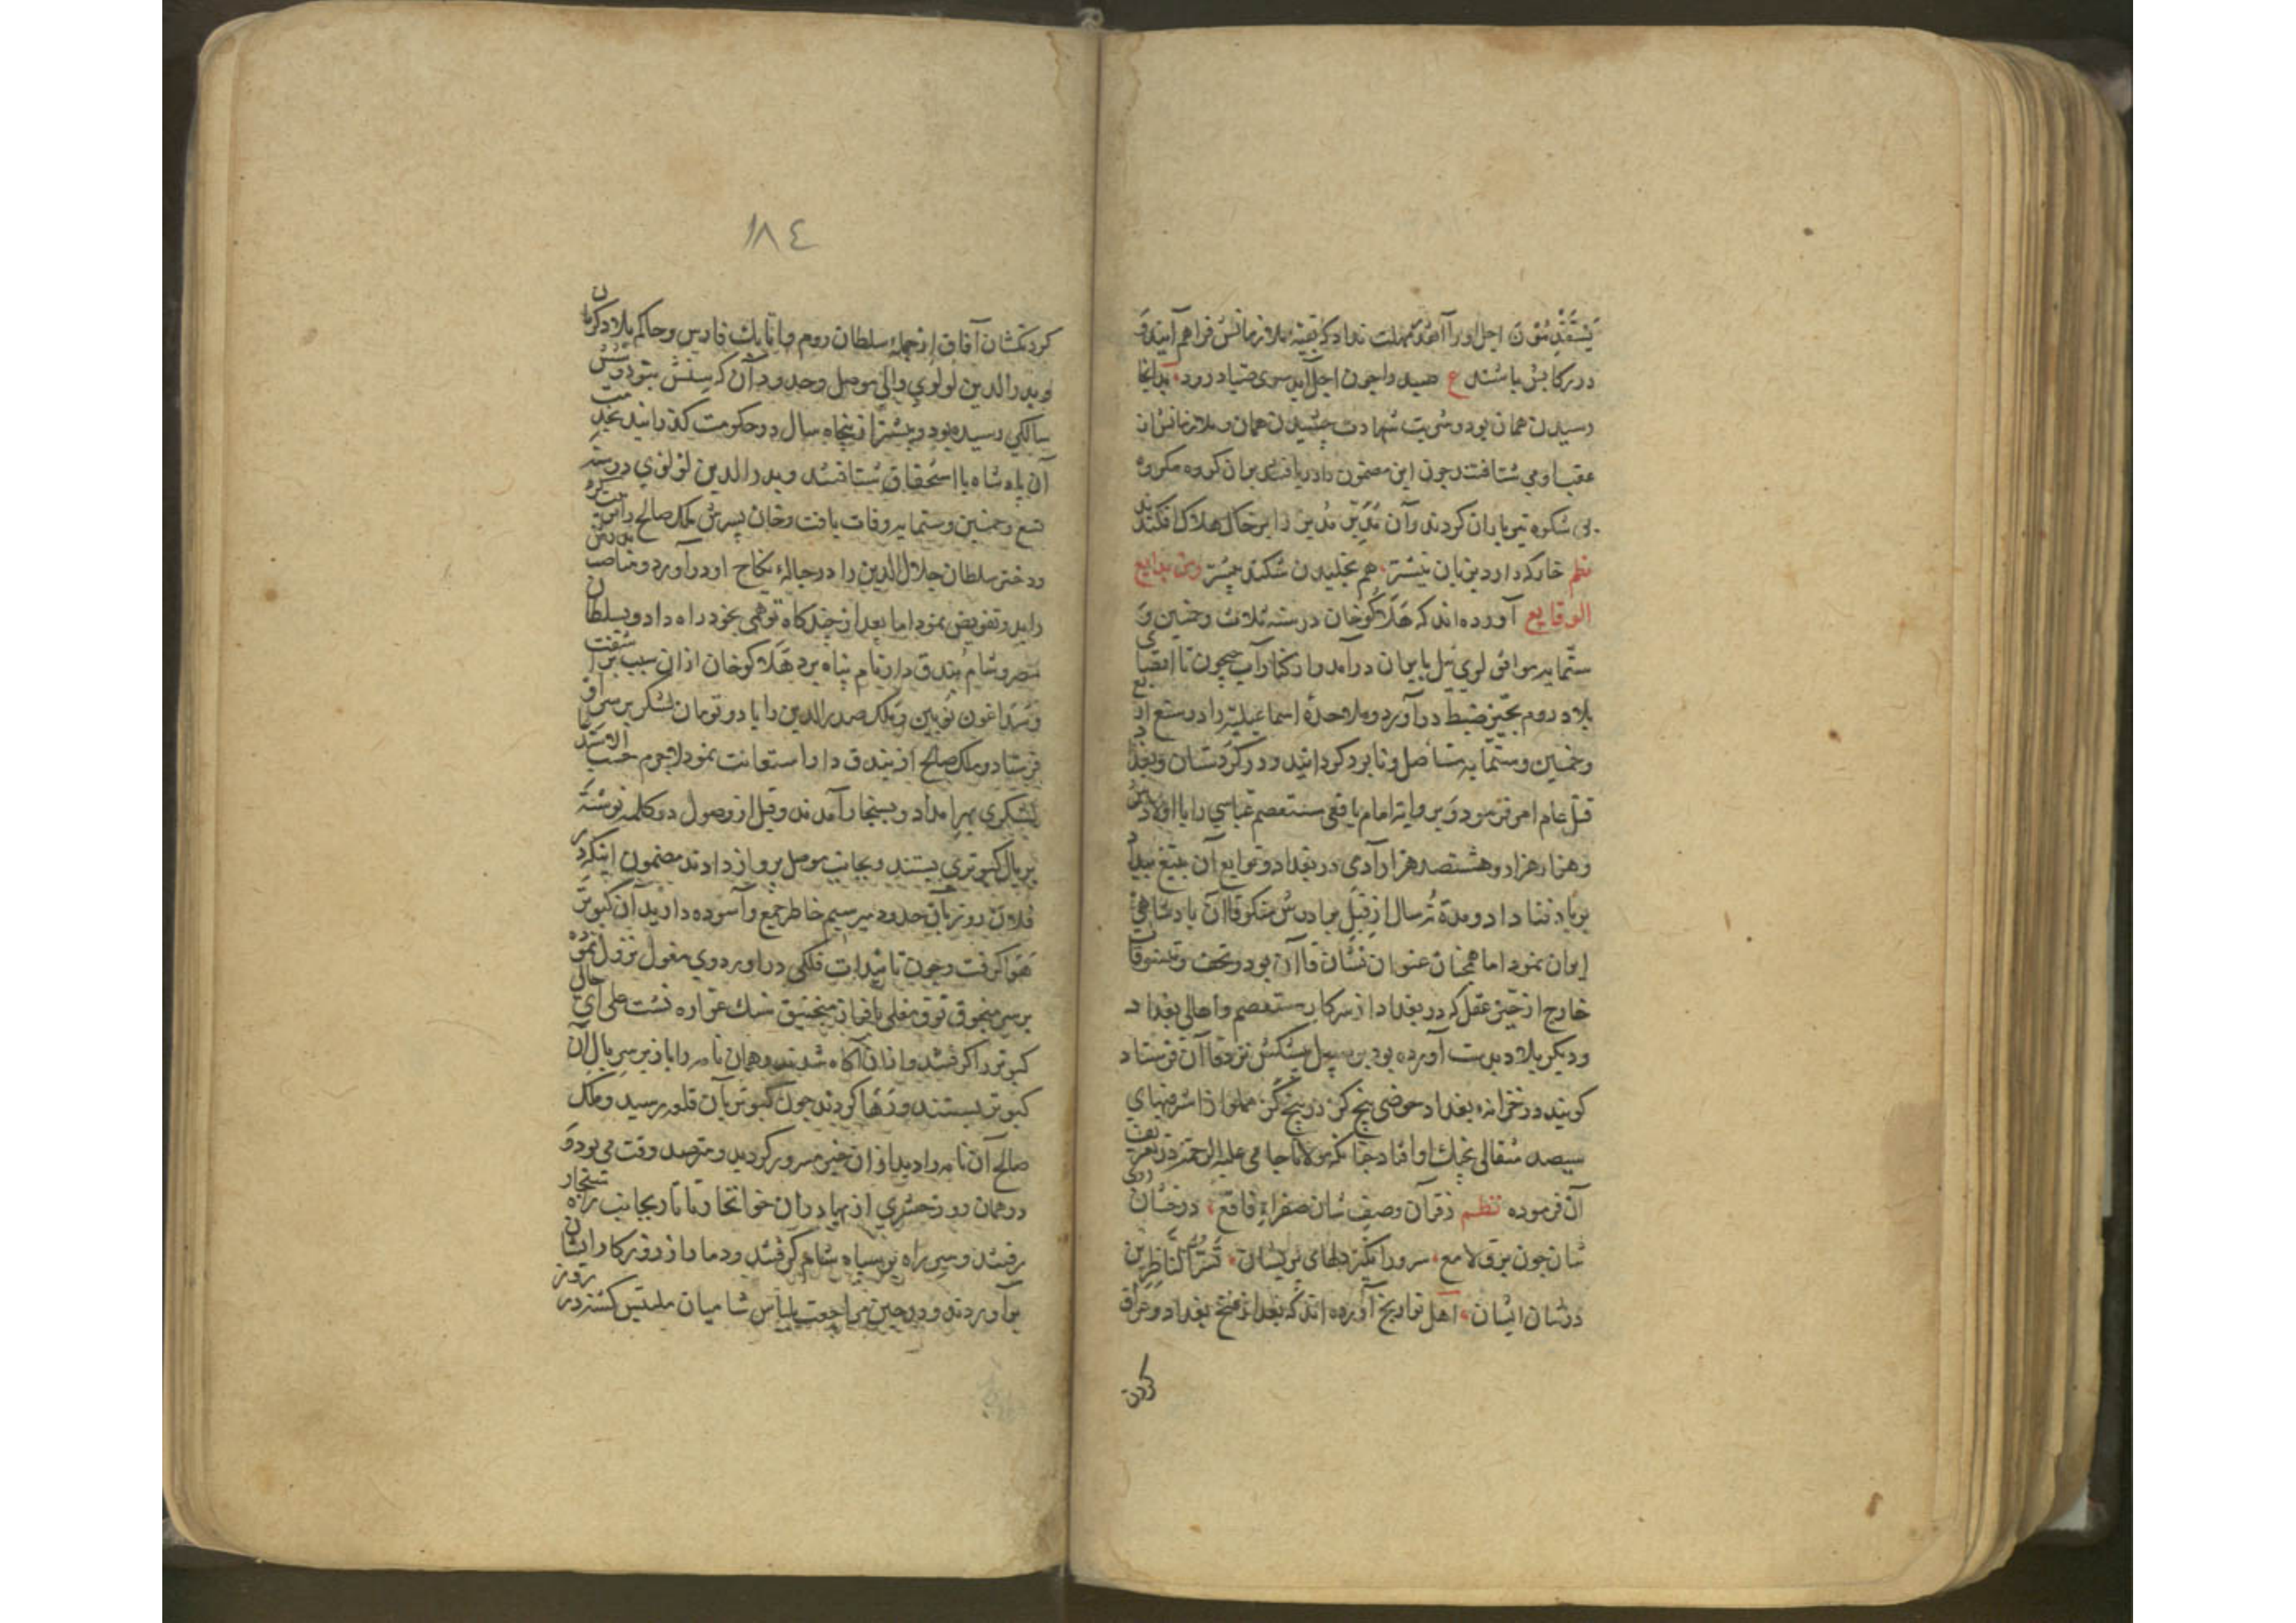 یستقدمون اجل او را آهو مهلت نداد که بقیه ملازمانش فراهم آیند و
در رکابش باشند ع صید را چون اجل آید سوی صیاد رود بدانجا
رسیدن همان بود و شربت شهادت چشیدن همان و ملازمانش از
عقب او می شتافتند چون این مضمون را دریافتند بران کروه مکروه
بی شکوه تیرباران کردند و آن مدبر را بر خاک هلاک افکندند
نظم خار که دارد بزبان نیشتر هم بخلیدن شکند پیشتر ومن بدایع
الوقایع آورده اند که هلاکو خان در سنه ثلاث و خمسین و
ستمایه موافق لوی ئیل بایران درآمد و از کنار آب جیحون تا اقصای
بلاد روم بحیز ضبط درآورد و ملاحدهٔ اسماعیلیه را در سنه اربع
و خمسین و ستمایه مستأصل و نابود کردانید و بعد
قتل عام امر فرمود و بروایت امام یافعی مستعصم عباسی را با اولادش
و هزار هزار و هشتصد هزار آدمی در بغداد و توابع آن بتیغ بیداد
بر باد فنا داد و مدة نه سال از قبل برادرش منکوقاآن پادشاهی
ایران نمود اما همچنان عنوان نشان قاآن بود و تحف و تنسوقات
خارج از حیز عقل که در بغداد از سرکار مستعصم و اهالی بغداد
و دیکر بلاد بدست آورده بود بر سبیل پیشکش نزد قاآن فرستاد
کویند در خزانهٔ بغداد حوضی پنج کز در پنج کز مملو از اشرفیهای
سیصد مثقالی بچنک او افتاد چنانکه مولانا جامی علیه الرحمه در تعریف
آن فرموده نظم ز قرآن وصف شان صفراء فاقع درخشان
شان چون برق لامع سرور انکیز دلهای پریشان تسر الناظرین
در شان ایشان اهل تواریخ آورده اند که بعد از فتح بغداد و عراق
کردن
١٨٤
کردنکشان آفاق از جملهٔ سلطان روم و اتابک فارس و حاکم بلاد کرمان
و بدرالدین لولوی والی موصل و حدود آن که سنش بنود و شش
سالکی رسیده بود و بیشتر از پنجاه سال در حکومت کذرانید بخدمت
آن پادشاه با استحقاق شتافتند و بدرالدین لولوی در سنه
تسع و خمسین و ستمایه وفات یافت و خان پسرش ملک صالح را تربیت کرده
و دختر سلطان جلال الدین را در حبالهٔ نکاح او درآورد و مناصب پدرش
را بدو تفویض نمود اما بعد از چندکاه توهمی بخود راه داد و بسلطان
مصر و شام بندق دار نام پناه برد هلاکو خان از ان سبب برآشفت
و سنداغون نویین و ملک صدرالدین را با دو تومان لشکر بر سر او
فرستاد و ملک صالح از بندق دار استعانت نمود لاجرم حسب الاستدعا
لشکری بهر امداد و بسنجار آمدند و قبل از وصول دو کلمه نوشته
بر بال کبوتری بستند و بجانب موصل پرواز دادند مضمون اینکه در
فلان روز بآن حدود میرسیم خاطر جمع و آسوده دارید آن کبوتر
هوا کرفت و چون تائیدات فلکی در اوردوی مغول نزول نموده
بر سر منجوق توق مغلی یا فراز منجنیق سنک عراده نشست علی ای حال
کبوتر را کرفتند و از ان آکاه شدند و همان نامه را باز بر سر بال آن
کبوتر بستند و رها کردند چون کبوتر بآن قلعه رسید و ملک
صالح آن نامه را دید از ان خبر مسرور کردید و مترصد وقت می بود و
در همان روز حشری از بهادران خوانخار تاتار بجانب راه سنجار
رفتند و سر راه بر سپاه شام کرفتند و دمار از روزکار ایشان
برآوردند و در حین مراجعت بلباس شامیان ملبس کشته در روز